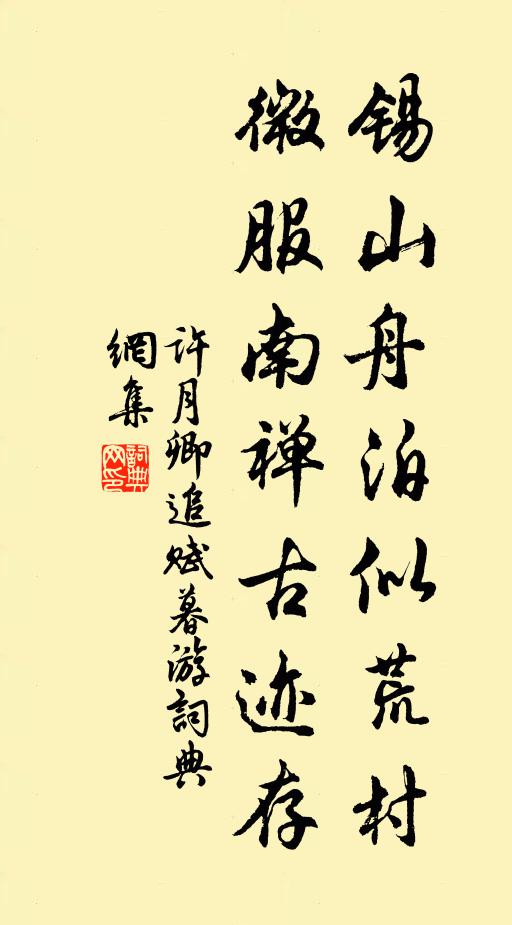 锡山舟泊似荒村
微服南禅古迹存
许月卿追赋暮游詞典
網集
詞典网印